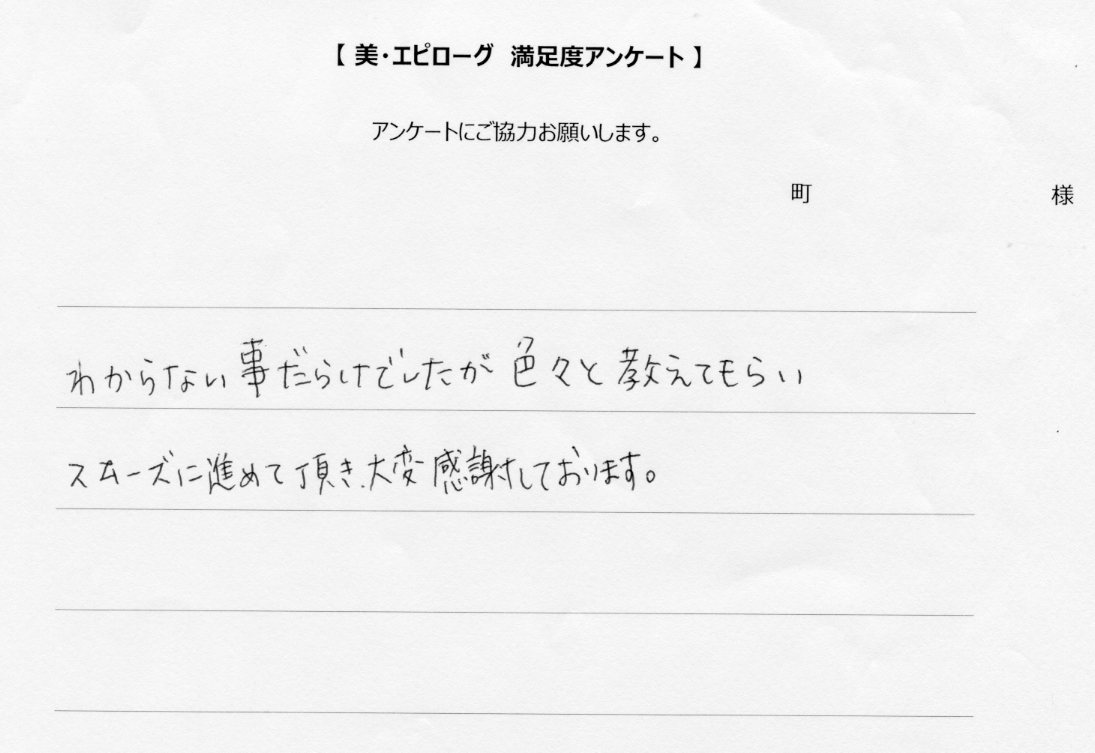 【 美・エピローグ 満足度アンケート 】
アンケートにご協力お願いします。
町 様
わからない事だらけでしたが色々と教えてもらい
スムーズに進めて頂き、大変感謝しております。